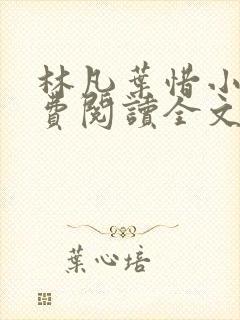 林凡葉惜小
費閱讀全文
葉心培